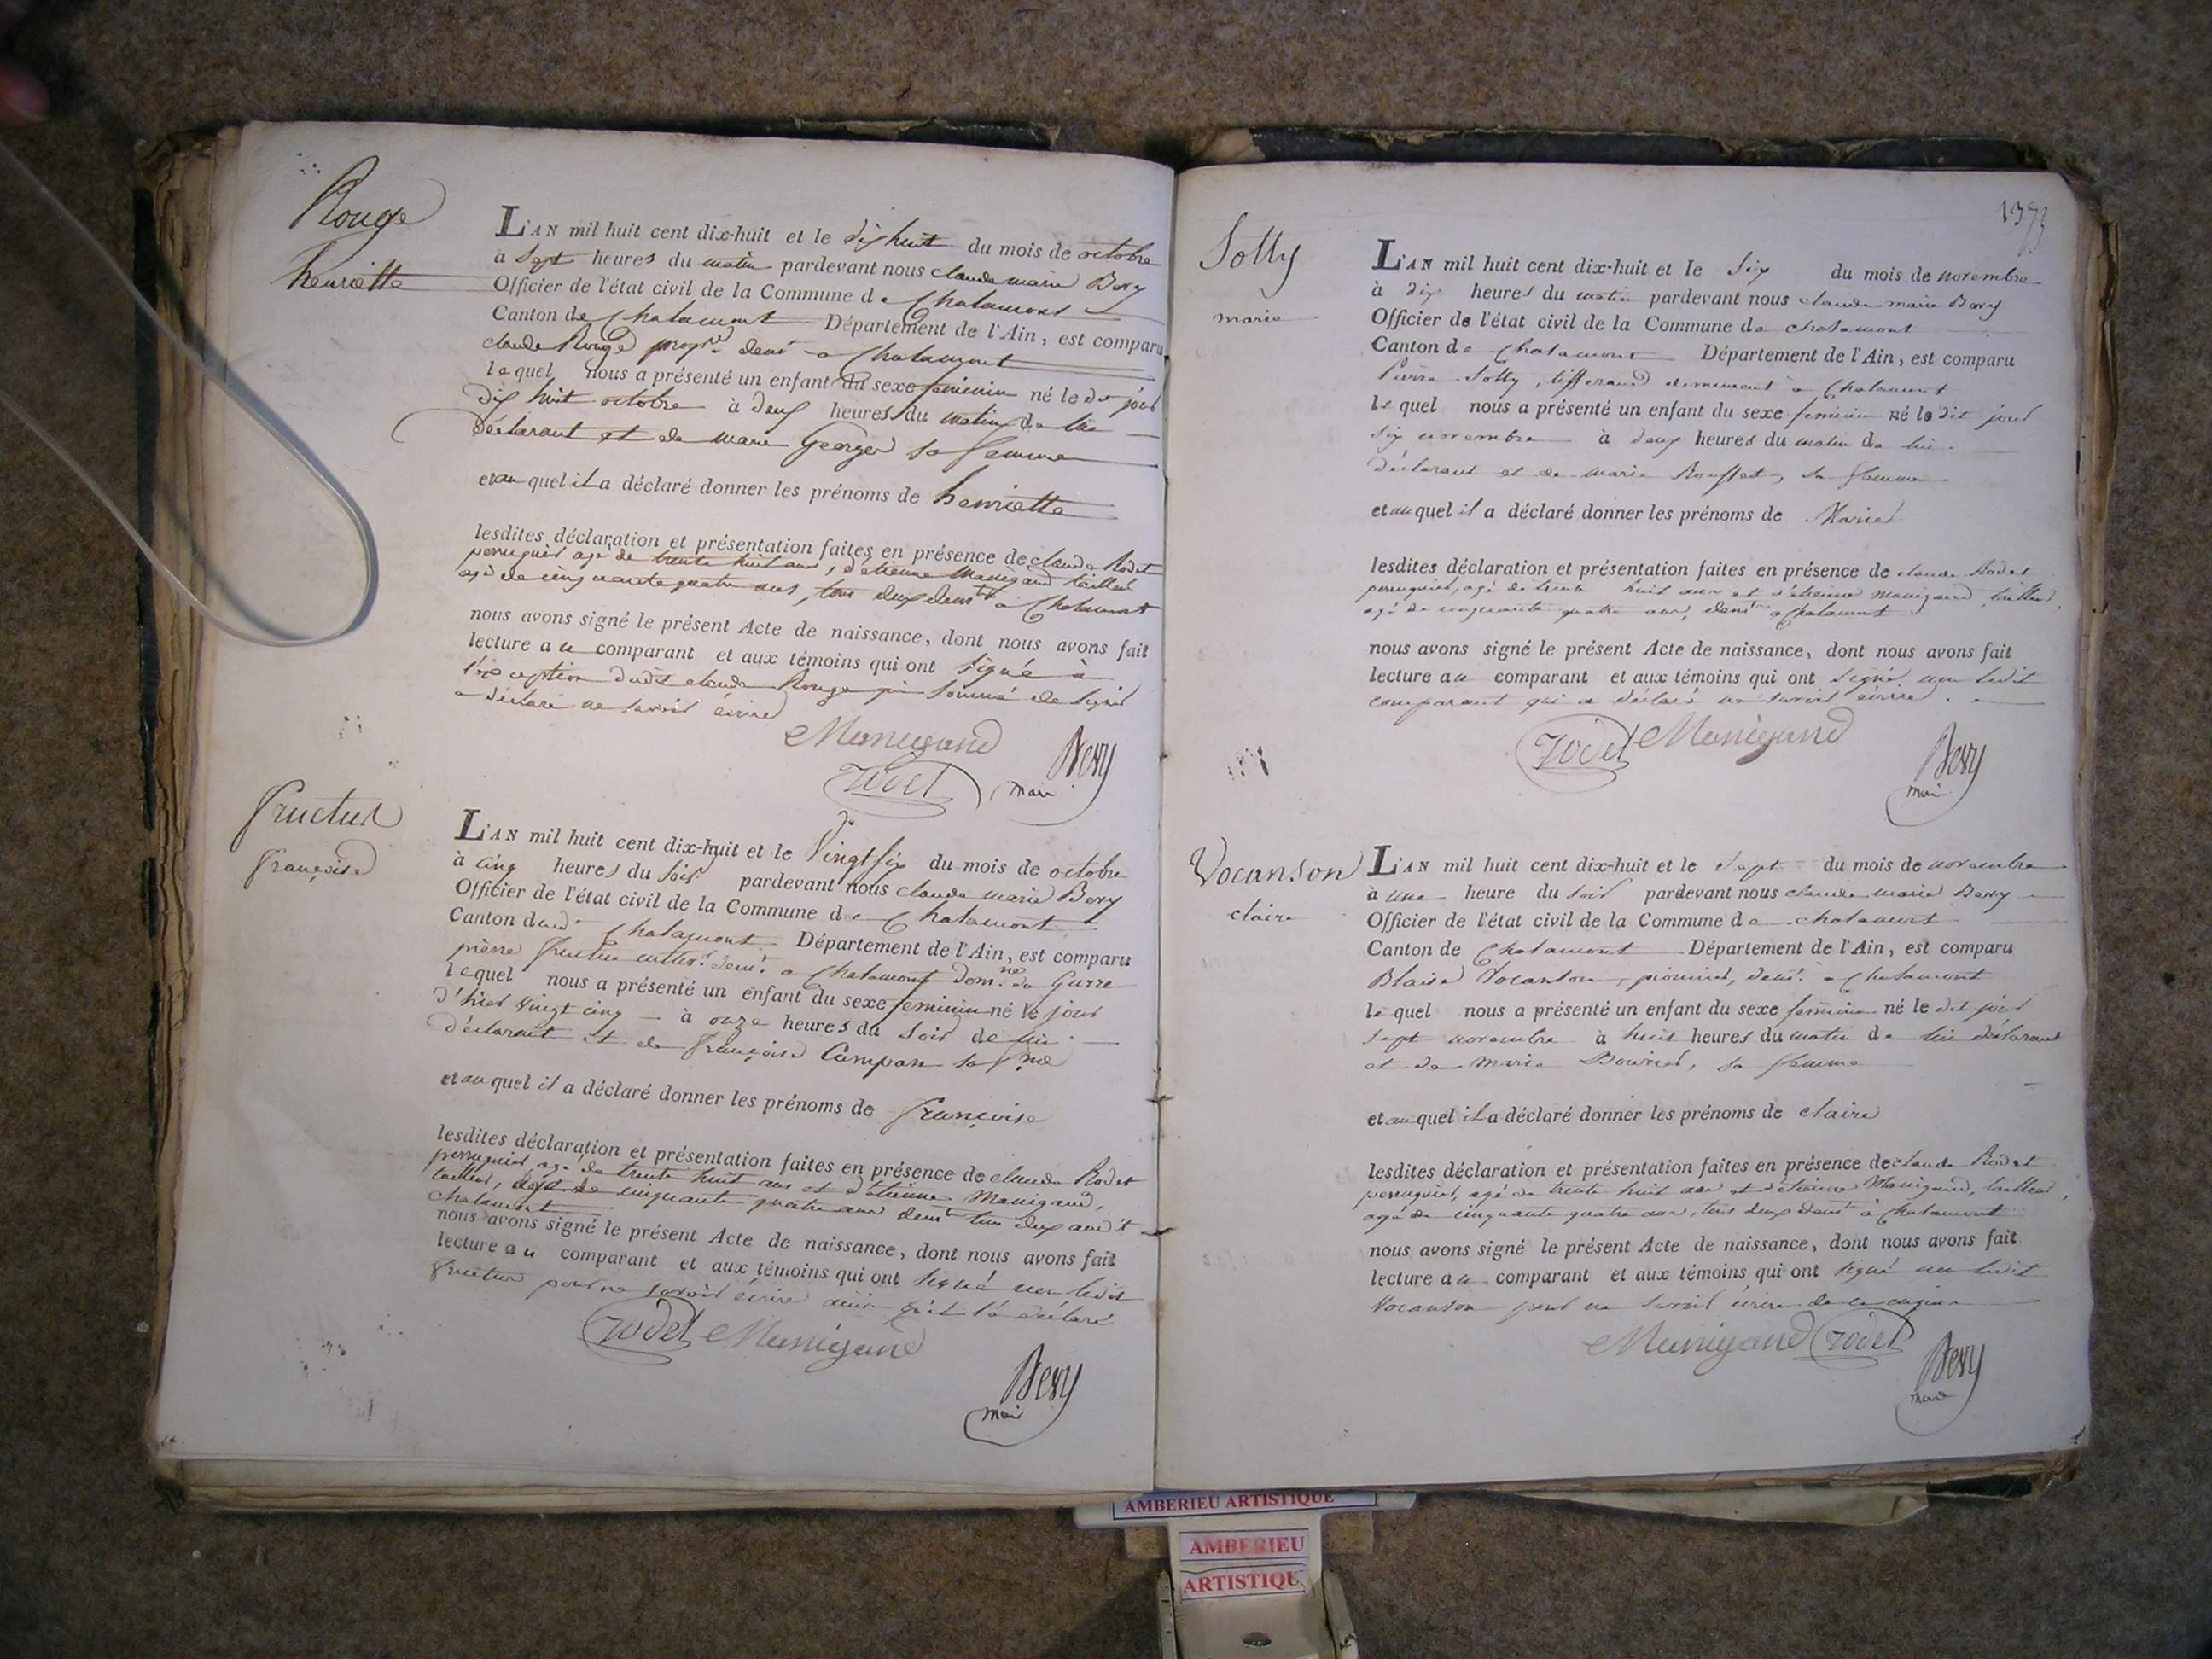 Rouge
henriette
L'AN mil huit cent dix-huit et le dix huit du mois de octobre
à Sept heures du matin pardevant nous claude marie Bery
Officier de l'état civil de la Commune de Chalamont
Canton de Chalamont Département de l'Ain, est comparu
claude Rouge propre demt a Chalamont
lequel nous a présenté un enfant du sexe feminin né le dt jour
dix huit octobre à deux heures du matin de lui
déclarant et de marie Georges sa femme
et au quel il a déclaré donner les prénoms de henriette
lesdites déclaration et présentation faites en présence de claude Rodet
perruquier agé de trente huit ans, d'étienne Manigand tailleur
agé de cinquante quatre ans, tous deux demt a Chalamont
nous avons signé le présent Acte de naissance, dont nous avons fait
lecture au comparant et aux témoins qui ont signé à
l'exception dudit claude Rouge qui sommé de signer
a déclaré ne savoir écrire
Manigand
Rodet
Bery
maire
fructus
françoise
L'AN mil huit cent dix-huit et le Vingt six du mois de octobre
à cinq heures du soir pardevant nous claude marie Bery
Officier de l'état civil de la Commune de Chalamont
Canton dud. Chalamont Département de l'Ain, est comparu
pierre demt a Chalamont domne de
lequel nous a présenté un enfant du sexe feminin né le jour
d'hier vingt cinq à onze heures du soir de lui
déclarant et de françoise Campan sa fme
et au quel il a déclaré donner les prénoms de françoise
lesdites déclaration et présentation faites en présence de claude Rodet
perruquier agé de trente huit ans et d'étienne Manigand,
tailleur, agé de cinquante quatre ans demt tous deux audit
chalamont
nous avons signé le présent Acte de naissance, dont nous avons fait
lecture au comparant et aux témoins qui ont signé non ledit
fructus pour ne savoir écrire ainsi qu'il l'a déclaré
Rodet Manigand
Bery
maire
1373
Solly
marie
L'AN mil huit cent dix-huit et le Six du mois de novembre
à dix heures du matin pardevant nous claude marie Bery
Officier de l'état civil de la Commune de chalamont
Canton de Chalamont Département de l'Ain, est comparu
Pierre Solly, tisserand demeurant a Chalamont
le quel nous a présenté un enfant du sexe feminin né le dit jour
six novembre à deux heures du matin de lui
déclarant et de marie Rousset, sa femme
et au quel il a déclaré donner les prénoms de Marie
lesdites déclaration et présentation faites en présence de claude Rodet
perruquier, agé de trente huit ans et d'étienne Manigand, tailleur,
agé de cinquante quatre ans, demt a Chalamont
nous avons signé le présent Acte de naissance, dont nous avons fait
lecture au comparant et aux témoins qui ont signé non ledit
comparant qui a déclaré ne savoir écrire.
Rodet Manigand
Bery
maire
Vocanson
claire
L'AN mil huit cent dix-huit et le Sept du mois de novembre
à une heure du soir pardevant nous claude marie Bery
Officier de l'état civil de la Commune de chalamont
Canton de Chalamont Département de l'Ain, est comparu
Blaise Vocanson, demt a Chalamont
le quel nous a présenté un enfant du sexe feminin né le dit jour
sept novembre à huit heures du matin de lui déclarant
et de marie Bouvier, sa femme
et au quel il a déclaré donner les prénoms de claire
lesdites déclaration et présentation faites en présence de claude Rodet
perruquier, agé de trente huit ans et d'étienne Manigand, tailleur,
agé de cinquante quatre ans, tous deux demt à Chalamont
nous avons signé le présent Acte de naissance, dont nous avons fait
lecture au comparant et aux témoins qui ont signé non ledit
Vocanson pour ne savoir écrire de ce enquis
Manigand Rodet
Bery
maire
AMBERIEU ARTISTIQUE
AMBERIEU
ARTISTIQUE